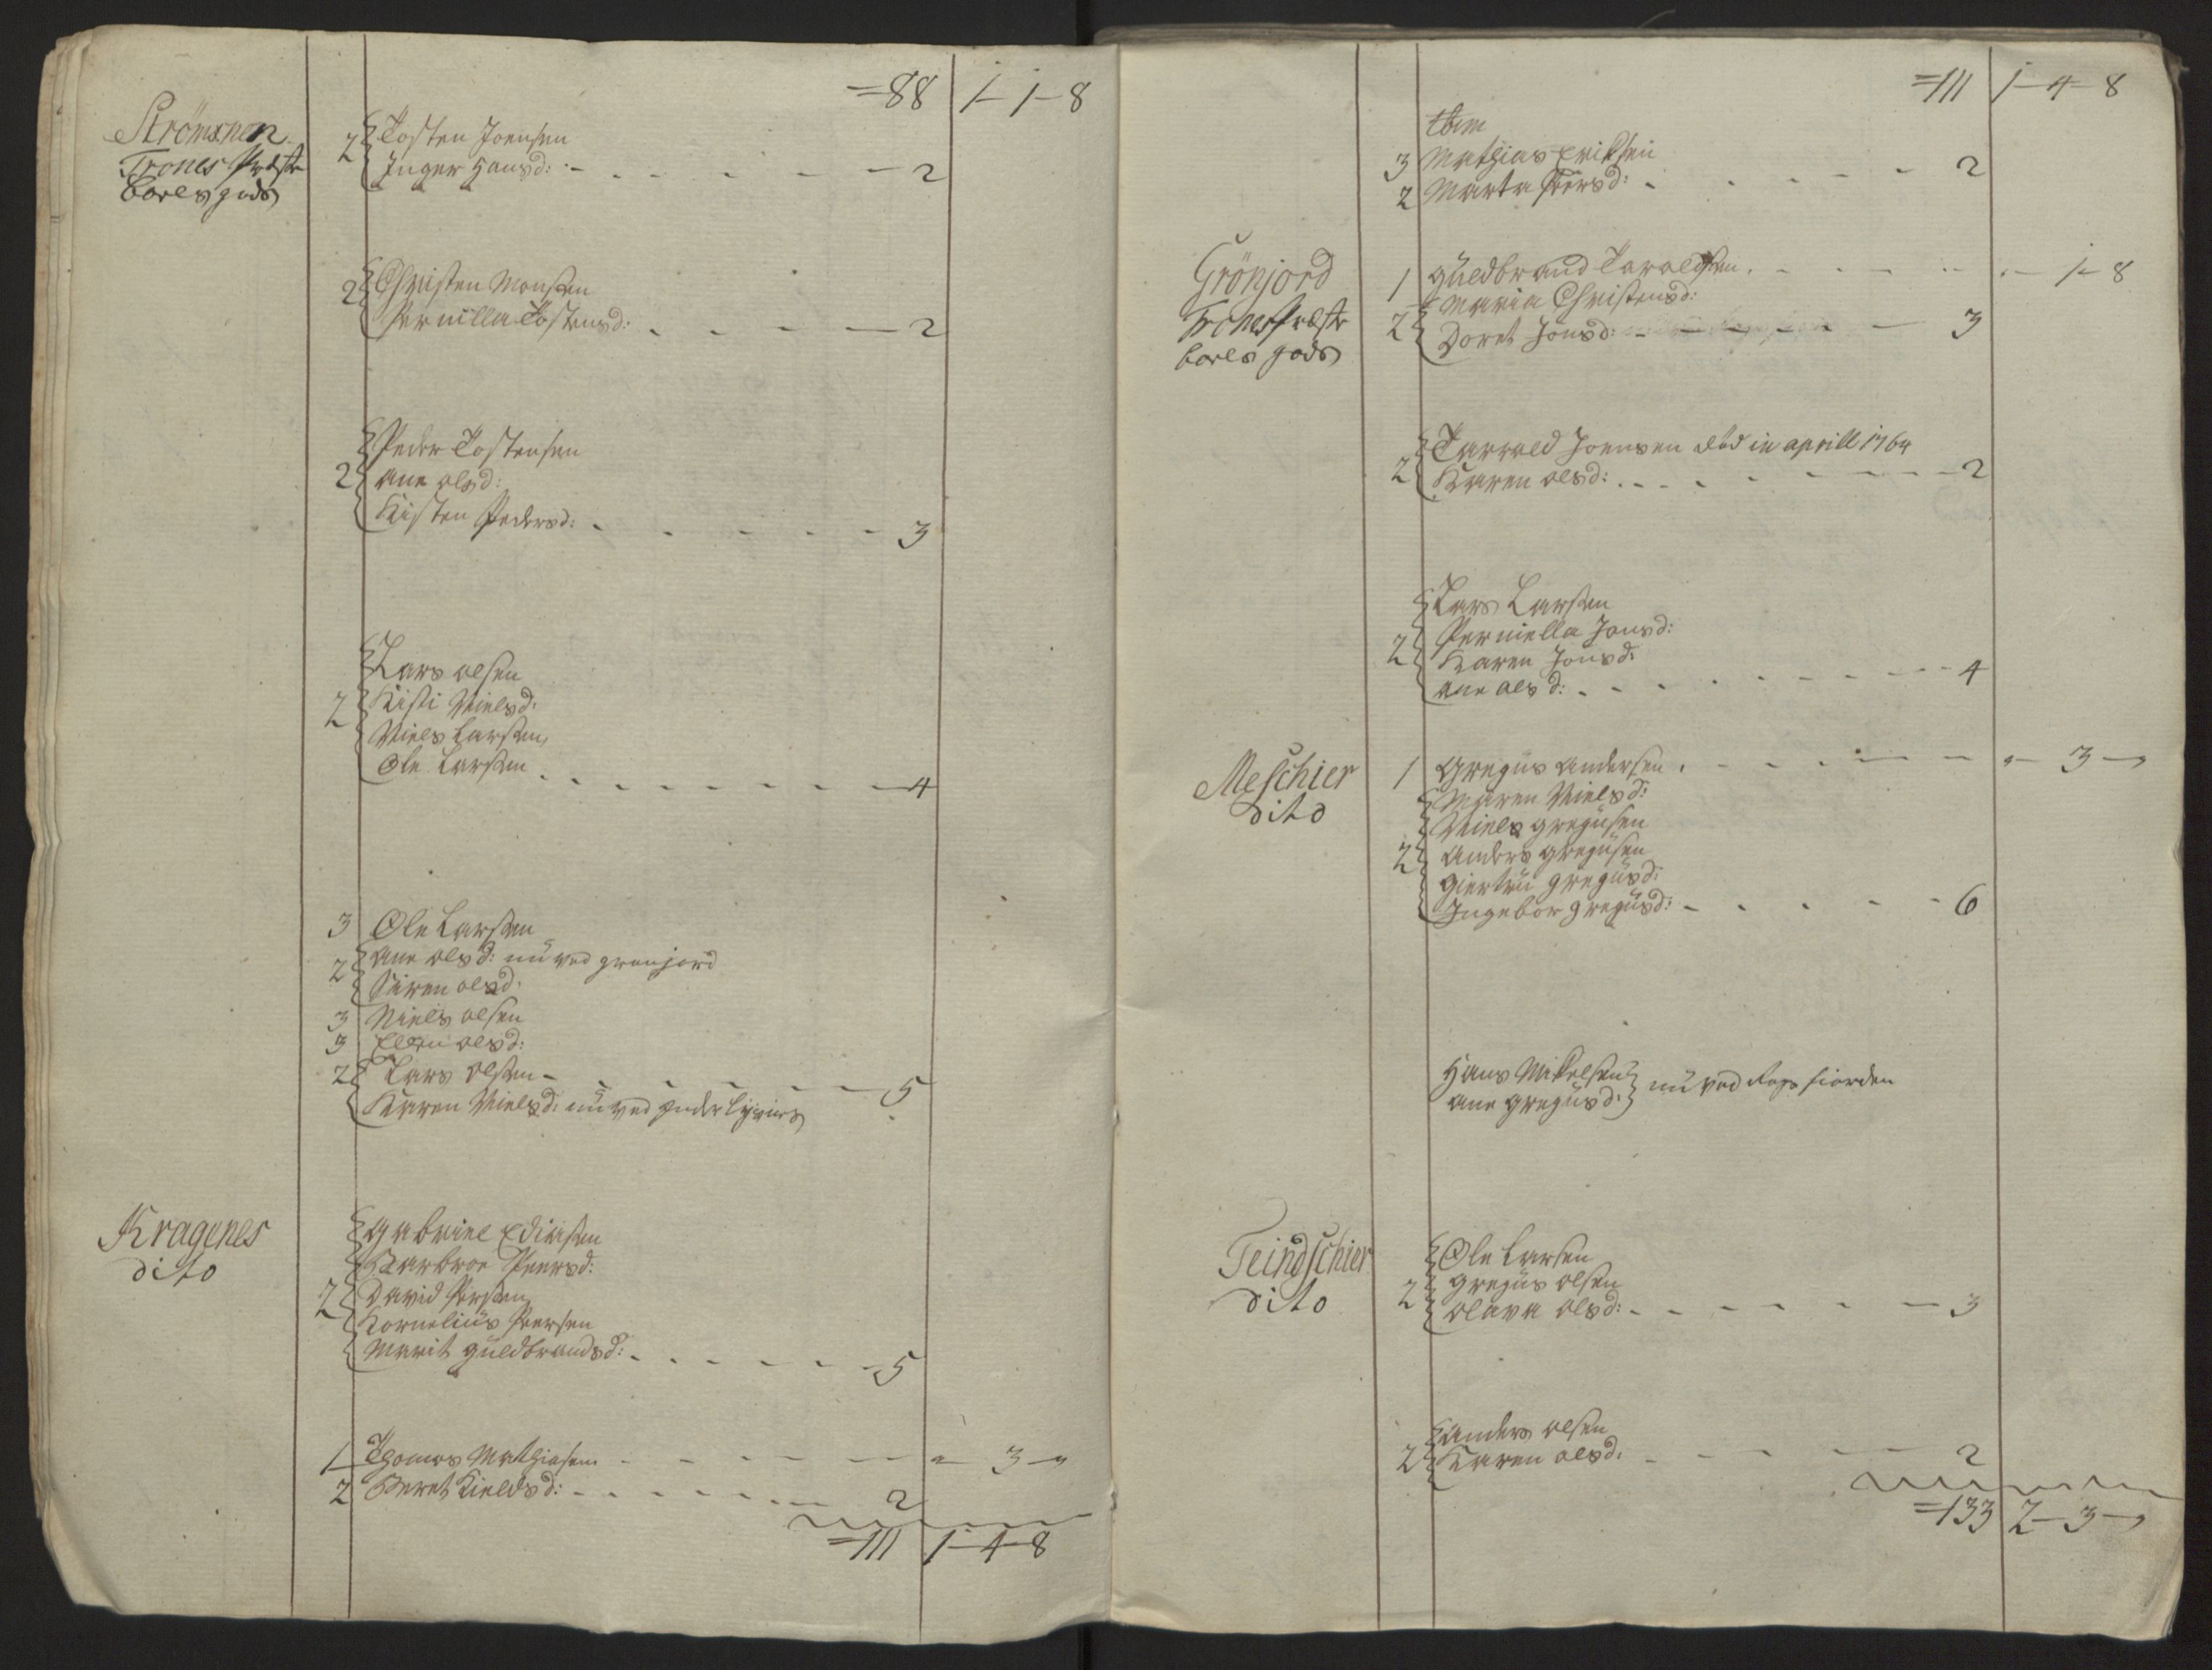 =88 1-1-8
Strömsnen
Trones Præste
boels gods
2 Tosten Joensen
Inger Hansd: - - - - - 2
2 Christen Monsen
Pernilla Tostensd: - - - - 2
Peder Tostensen
2 Ane olsd:
Kisten Pedersd: - - - - - 3
Lars olsen
2 Kisti Nielsd:
Niels Larsen
Ole Larsen - - - - - - 4
3 Ole Larsen
2 Ane olsd: nu ved grønjord
Siren olsd:
3 Niels olsen
3 Ellen olsd:
2 Lars olsen - - - - - 5
Karen Nielsd: nu ved
Kragenes
dito
Gabriel
Barbroe Peersd:
2 David Persen
Kornelius Peersen
Marit Guldbrandsd: - - - - - 5
1 Thomas Mathiasen - - - - - 3 -
2 Beret Kieldsd: - - - - - - 2
=111 1-4-8
=111 1-4-8
tbem
3 Mathias Eriksen
2 Marta Persd: - - - - - 2
Grönjord
Trones Præste
boels gods
1 Guldbrand Taraldsen - - - - 1-8
Maria Christensd:
2 Doret Jonsd: - - - - 3
Tarrald Joensen död in aprill 1764
2 Karen olsd: - - - - - - 2
Lars Larsen
2 Perniella Jonsd:
Karen Jonsd:
Ane olsd: - - - - - - 4
Meschier
dito
1 Gregus Andersen - - - - - 3 -
Maren Nielsd:
Niels Gregusen
2 Anders Gregusen
Giertru Gregusd:
Ingebor Gregusd: - - - - - 6
Hans Mikelsen
Ane Gregusd: nu ved fiorden
Teindschier
dito
Ole Larsen
2 Gregus olsen
olava olsd: - - - - - 3
Anders olsen
2 Karen olsd: - - - - 2
=133 2-3-